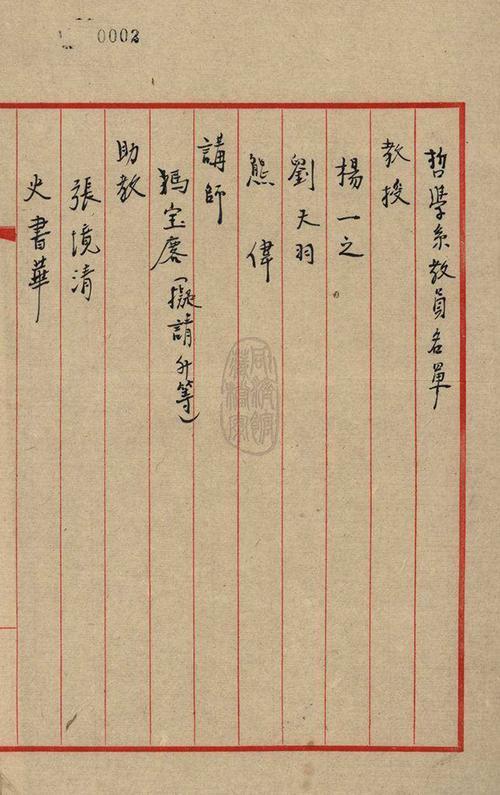 0002
哲學系教員名單
教授
楊一之
劉天羽
熊偉
講師
馮宝麐(擬請升等)
助教
張境清
史書華